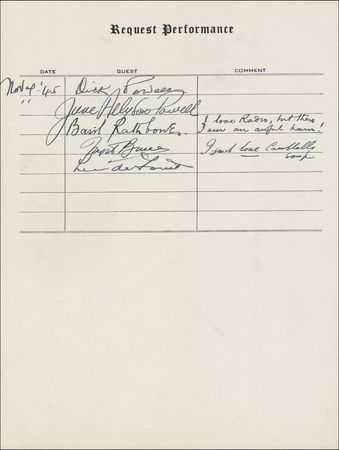 Request Performance
DATE GUEST COMMENT
Nov 4. '45 Dick Powell
" June Allyson Powell
Basil Rathbone. I love Radio, but then I am an awful ham!
Nigel Bruce I just love Campbells soup